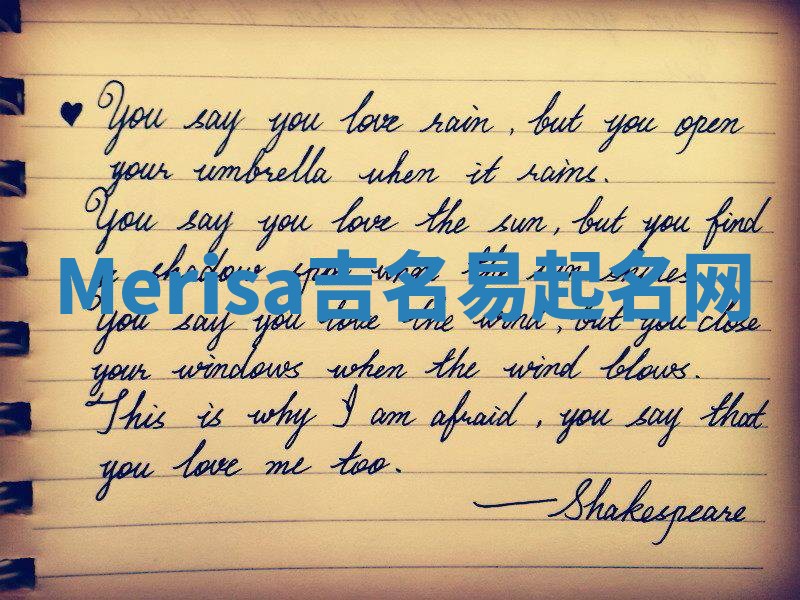 ♥ You say you love rain, but you open
your umbrella when it rains.
You say you love the sun, but you find
a shadow spot when the sun shines.
Merisa吉名易起名网
You say you love the wind, but you close
your windows when the wind blows.
This is why I am afraid, you say that
you love me too.
— Shakespeare